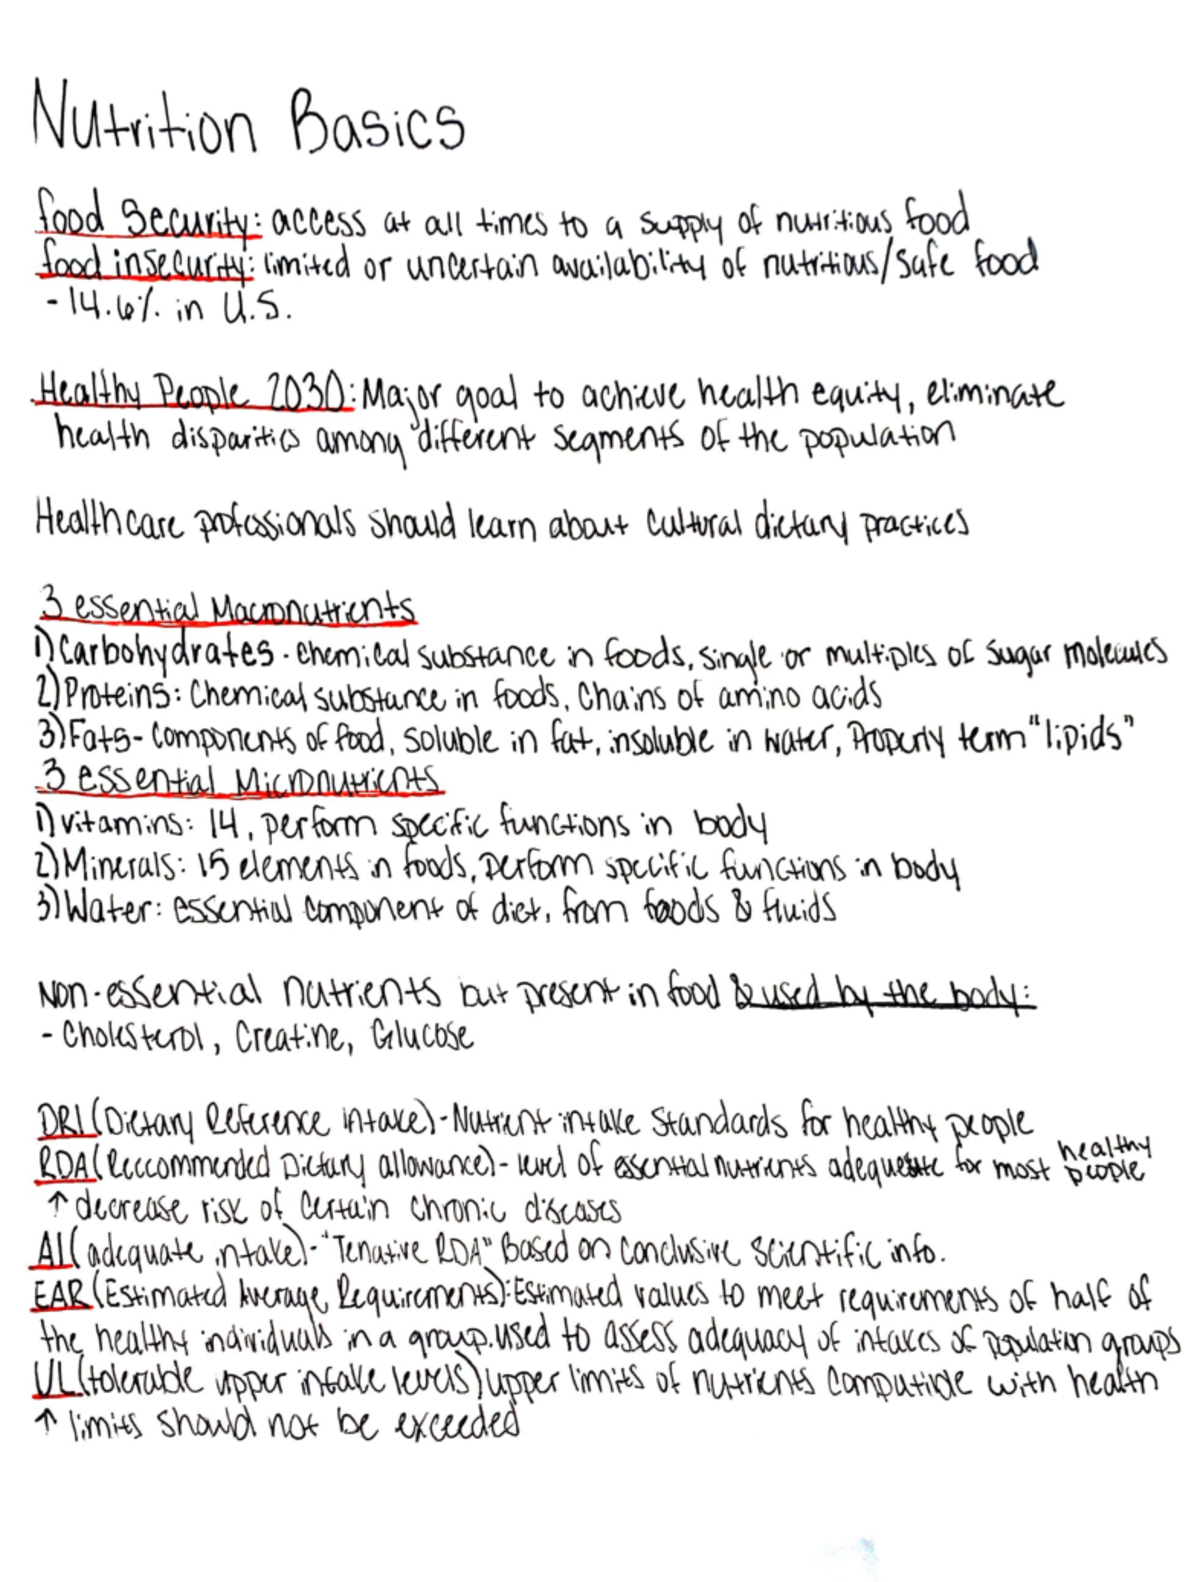 Nutrition Basics
food Security: access at all times to a supply of nutritious food
food insecurity: limited or uncertain availability of nutritious/safe food
- 14.6% in U.S.
Healthy People 2030: Major goal to achieve health equity, eliminate
health disparities among different segments of the population
Healthcare professionals should learn about cultural dietary practices
3 essential Macronutrients
1) Carbohydrates - chemical substance in foods, single or multiples of sugar molecules
2) Proteins: Chemical substance in foods, Chains of amino acids
3) Fats - Components of food, soluble in fat, insoluble in water, Properly term "lipids"
3 essential Micronutrients
1) vitamins: 14, perform specific functions in body
2) Minerals: 15 elements in foods, perform specific functions in body
3) Water: essential component of diet, from foods & fluids
Non-essential nutrients but present in food & used by the body:
- Cholesterol, Creatine, Glucose
DRI (Dietary Reference intake) - Nutrient intake Standards for healthy people
RDA (Reccommended Dietary allowance) - level of essential nutrients adequate for most healthy people
↑ decrease risk of certain chronic diseases
AI (adequate intake) - "Tenative RDA" Based on conclusive scientific info.
EAR (Estimated Average Requirements): Estimated values to meet requirements of half of
the healthy individuals in a group. used to assess adequacy of intakes of population groups
UL (tolerable upper intake levels) upper limits of nutrients computible with health
↑ limits should not be exceeded